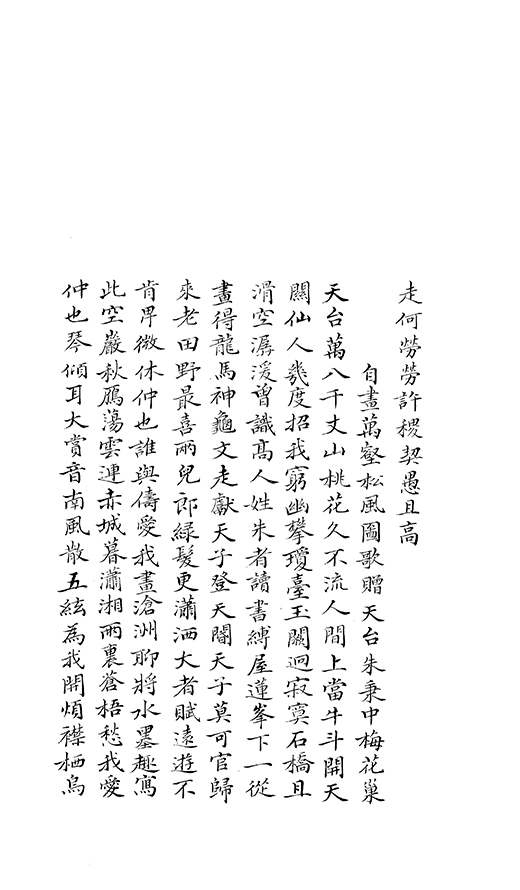 走何勞勞許稷契愚且高
自畫萬壑松風圖歌贈天台朱秉中梅花巢
天台萬八千丈山桃花久不流人間上當牛斗開天
關仙人幾度招我窮幽攀瓊臺玉闕迥寂寞石橋且
滑空潺湲曽識髙人姓朱者讀書縛屋蓮峯下一從
畫得龍馬神龜文走獻天子登天閽天子莫可官歸
來老田野最喜兩兒郎綠髮更瀟洒大者賦遠遊不
肯卑微休仲也誰與儔愛我畫滄洲聊將水墨趣寫
此空巖秋鴈蕩雲連赤城暮瀟湘雨裏蒼梧愁我愛
仲也琴傾耳大賞音南風散五絃為我開煩襟栖烏